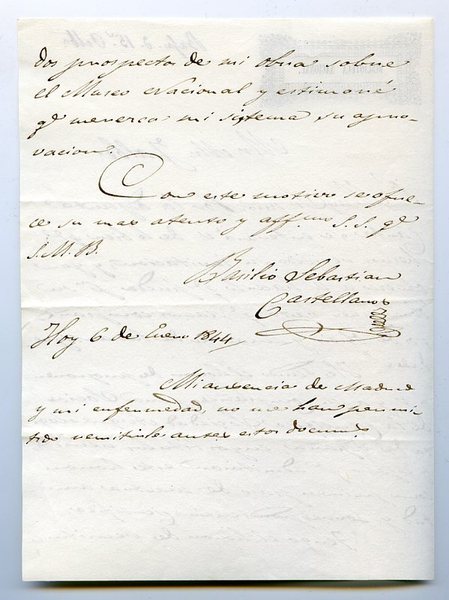 dos prospectos de mi obra sobre
el Museo Nacional y estimaré
qe merezca mi sistema su apro-
vacion.
Con este motivo se ofre-
ce su mas atento y aff.mo S. S. q
S. M. B.
Basilio Sebastian
Castellanos
Hoy 6 de Enero 1844
Mi ausencia de Madrid
y mi enfermedad, no me han permi-
tido remitirle antes estos docum.s